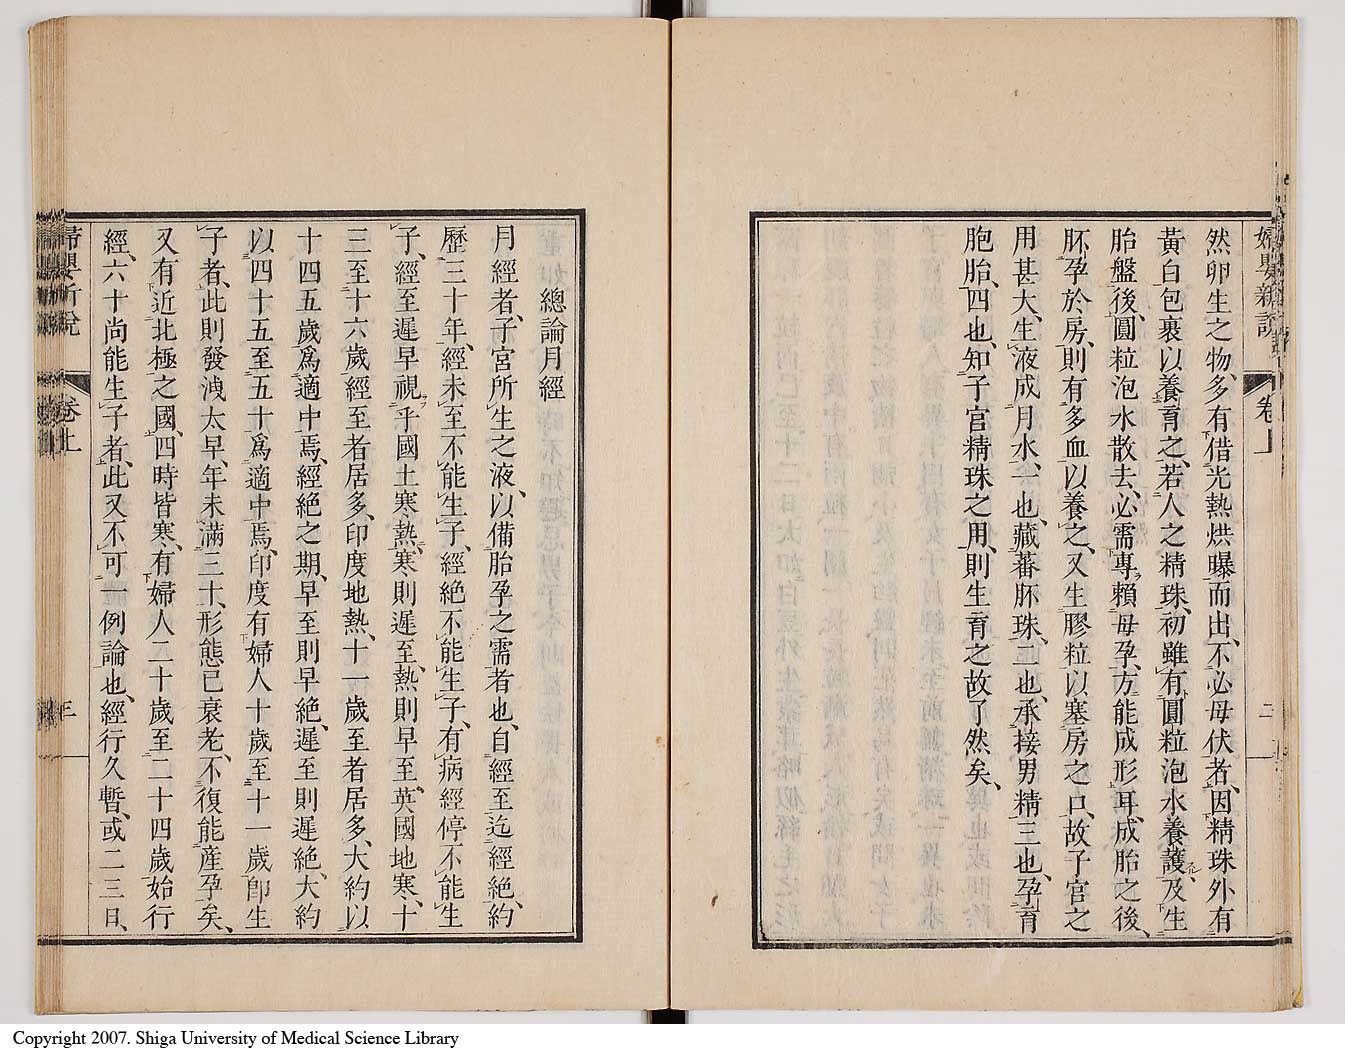 婦嬰新說
卷上
二
然卵生之物、多有借光熱烘曝而出、不必母伏者、因精珠外有
黃白包裹以養育之、若人之精珠、初雖有圓粒泡水養護、及生
胎盤後、圓粒泡水散去、必需專賴母孕、方能成形耳、成胎之後、
胚孕於房、則有多血以養之、又生膠粒以塞房之口、故子宮之
用甚大、生液成月水、一也、藏蓄胚珠、二也、承接男精三也、孕育
胞胎、四也、知子宮精珠之用、則生育之故了然矣、
總論月經
月經者、子宮所生之液、以備胎孕之需者也、自經至迄經絕、約
歷三十年、經未至不能生子、經絕不能生子、有病經停不能生
子、經至遲早視乎國土寒熱、寒則遲至、熱則早至、英國地寒、十
三至十六歲經至者居多、印度地熱、十一歲至者居多、大約以
十四五歲爲適中焉、經絕之期、早至則早絕、遲至則遲絕、大約
以四十五至五十爲適中焉、印度有婦人十歲至十一歲卽生
子者、此則發洩太早、年未滿三十、形態已衰老、不復能產孕矣、
又有近北極之國、四時皆寒、有婦人二十歲至二十四歲始行
經、六十尚能生子者、此又不可一例論也、經行久暫、或二三日、
婦嬰新說
卷上
三
Copyright 2007. Shiga University of Medical Science Library